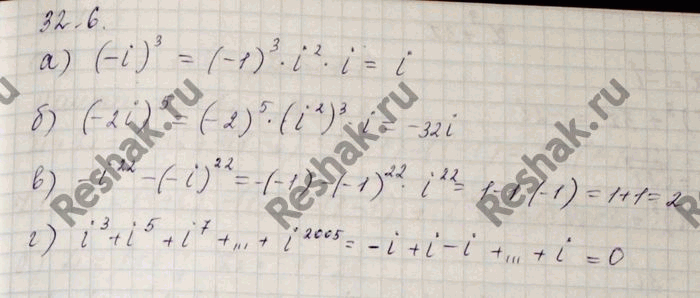 32.6.
а) (-i)³ = (-1)³ · i² · i = i
б) (-2i)⁵ = (-2)⁵ · (i²)³ i = -32i
в) -i²² - (-i)²² = -(-1) - (-1)²² · i²² = 1 - 1 · (-1) = 1+1 = 2
г) i³ + i⁵ + i⁷ + ... + i²⁰⁰⁵ = -i + i - i + ... + i = 0
Reshak.ru
Reshak.ru
Reshak.ru
Reshak.ru
Reshak.ru